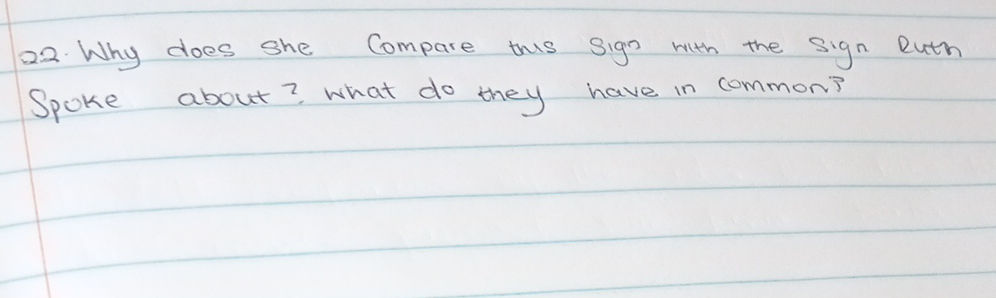 22. Why does she Compare this Sign with the Sign Ruth
Spoke about? What do they have in common?